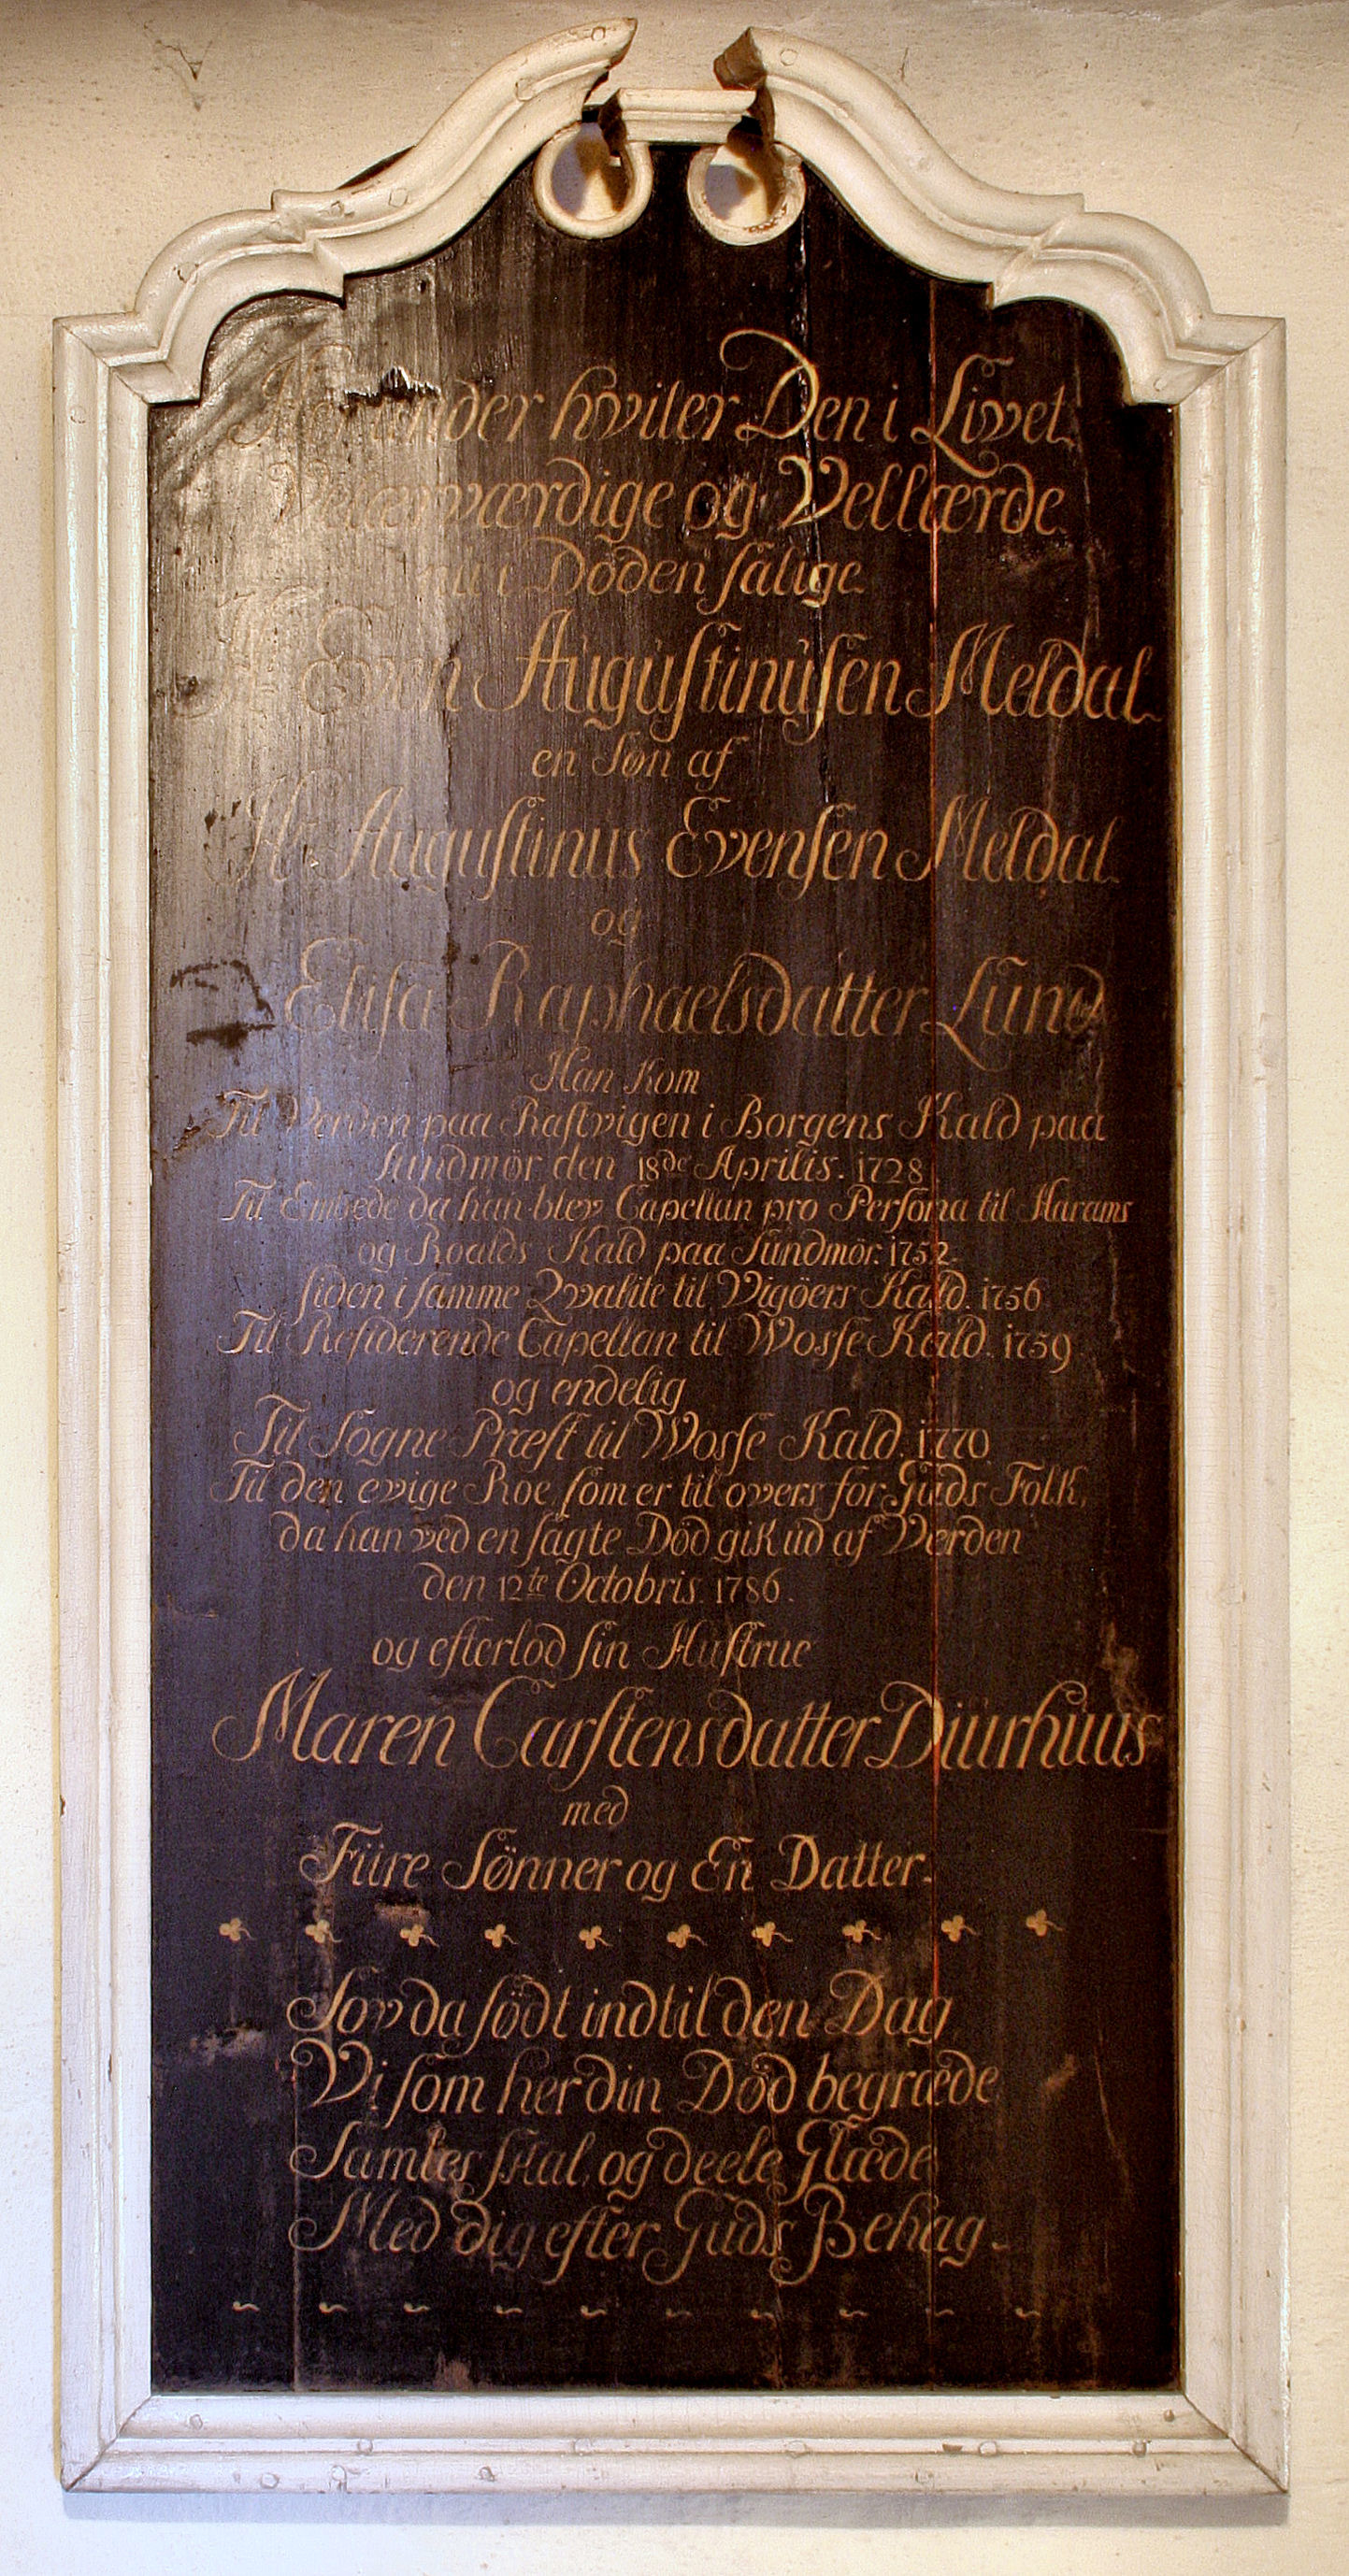 Her under hviler Den i Livet
Velærværdige og Vellærde
nu i Døden salige
Hr Even Augustinusen Meldal
en Søn af
Hr Augustinus Evensen Meldal
og
Elisa Raphaelsdatter Lund
Han Kom
Til Verden paa Rastvigen i Borgens Kald paa
Sundmör den 18de Aprilis. 1728
Til Embede da han blev Capellan pro Persona til Harams
og Roalds Kald paa Sundmör. 1752.
siden i samme Qvalite til Vigöers Kald. 1756
Til Residerende Capellan til Wosse Kald. 1759
og endelig
Til Sogne Præst til Wosse Kald. 1770
Til den evige Roe som er til overs for Guds Folk,
da han ved en sagte Död gik ud af Verden
den 12te Octobris. 1786.
og efterlod sin Hustrue
Maren Carstensdatter Diurhuus
med
Fiire Sønner og En Datter.
Sov da södt indtil den Dag
Vi som her din Död begræde
Samles skal, og deele Glæde
Med dig efter Guds Behag.